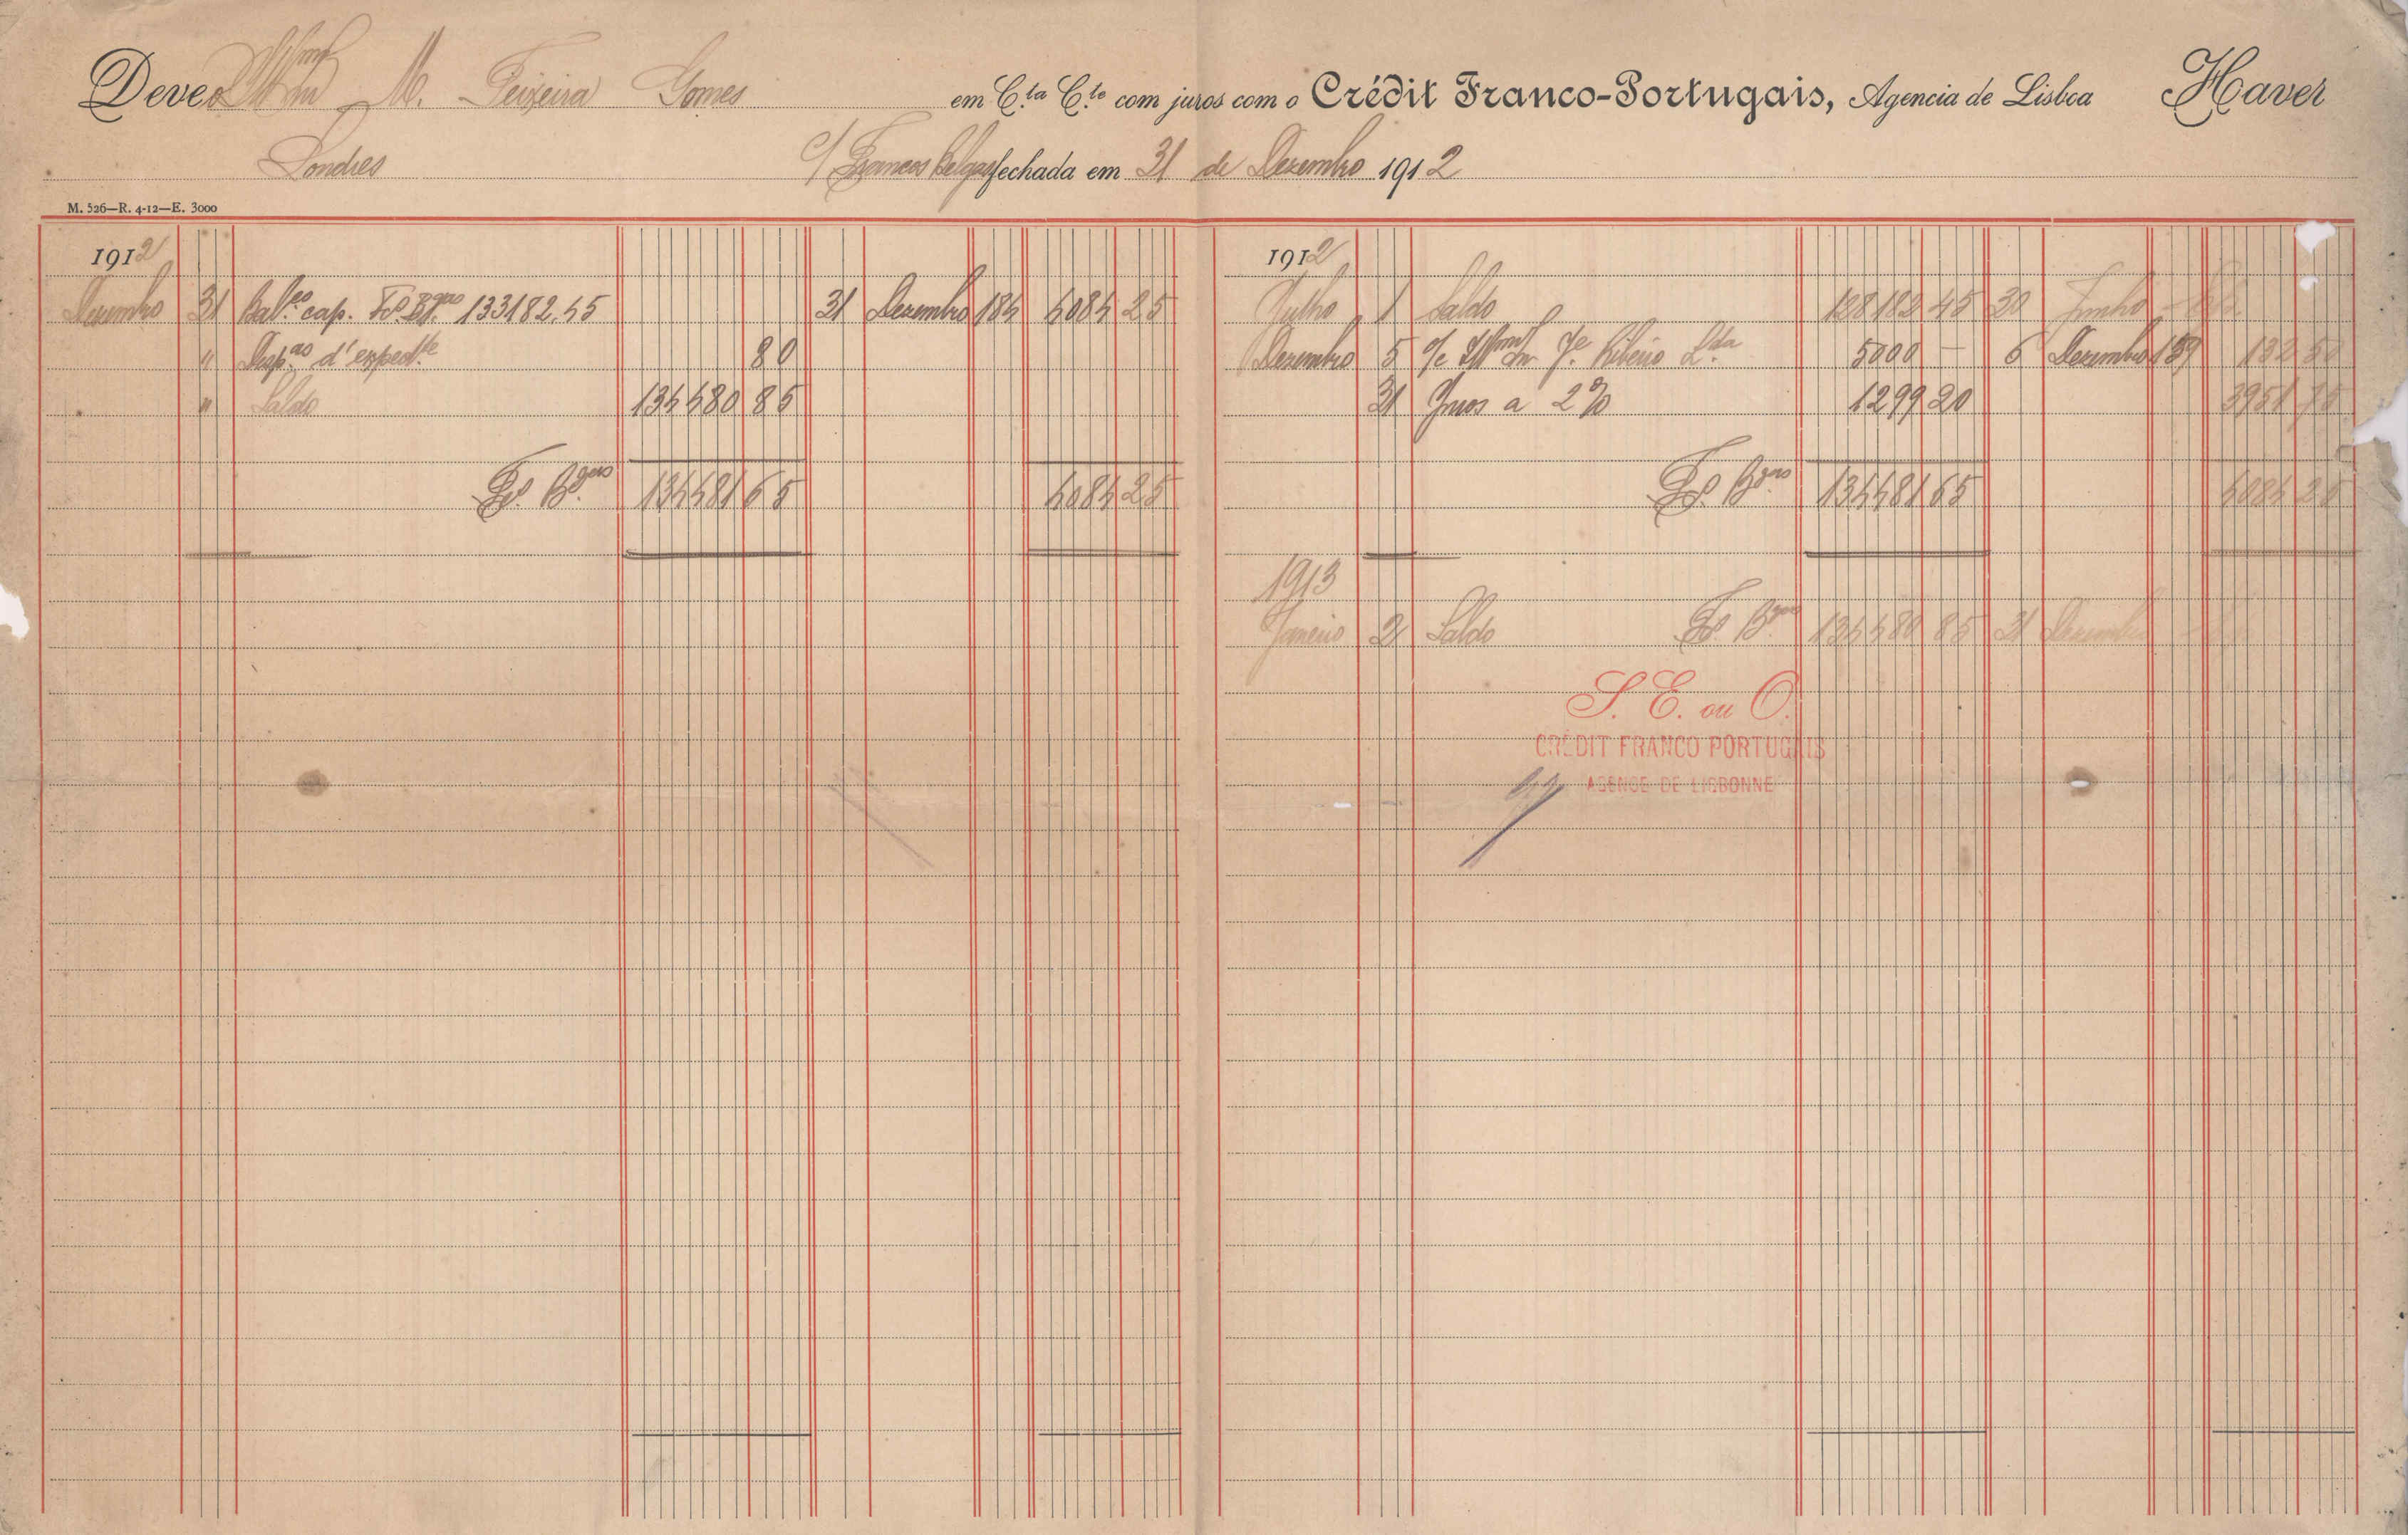 Deve o Illmo Snr M. Teixeira Gomes em C.ta C.te com juros com o Crédit Franco-Portugais, Agencia de Lisboa Haver
Londres c/ Francos Belgas fechada em 31 de Dezembro 1912
M. 526—R. 4-12—E. 3000
1912
Dezembro 31 Bal.co cap. Fcs Bgas 133182.45 31 Dezembro 184 4084 25
" Desp.as d'exped.te 80
" Saldo 134480 85
Fcs Bgas 134481 65 4084 25
1912
Julho 1 Saldo 128182 45 30 Junho
Dezembro 5 Illmo Snr Je. Ribeiro L.da 5000 — 6 Dezembro 159 132 50
31 Juros a 2% 1299 20 3951 75
Fcs Bgas 134481 65 4084 25
1913
Janeiro 2 Saldo Fcs Bgas 134480 85 31 Dezembro
S. E. ou O.
CRÉDIT FRANCO PORTUGAIS
AGENCE DE LISBONNE